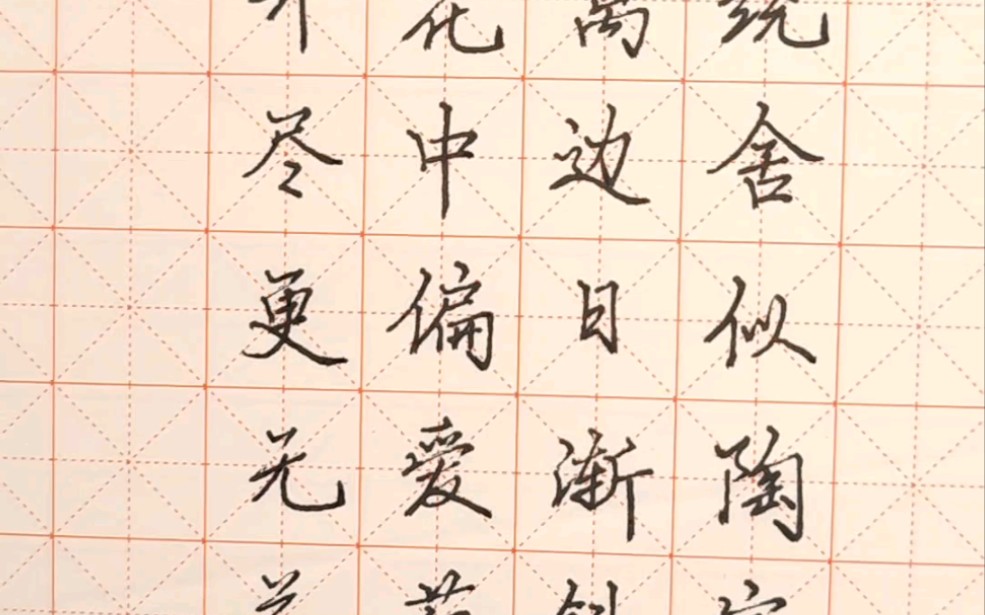 绕舍似陶
篱边日渐
花中偏爱
开尽更无